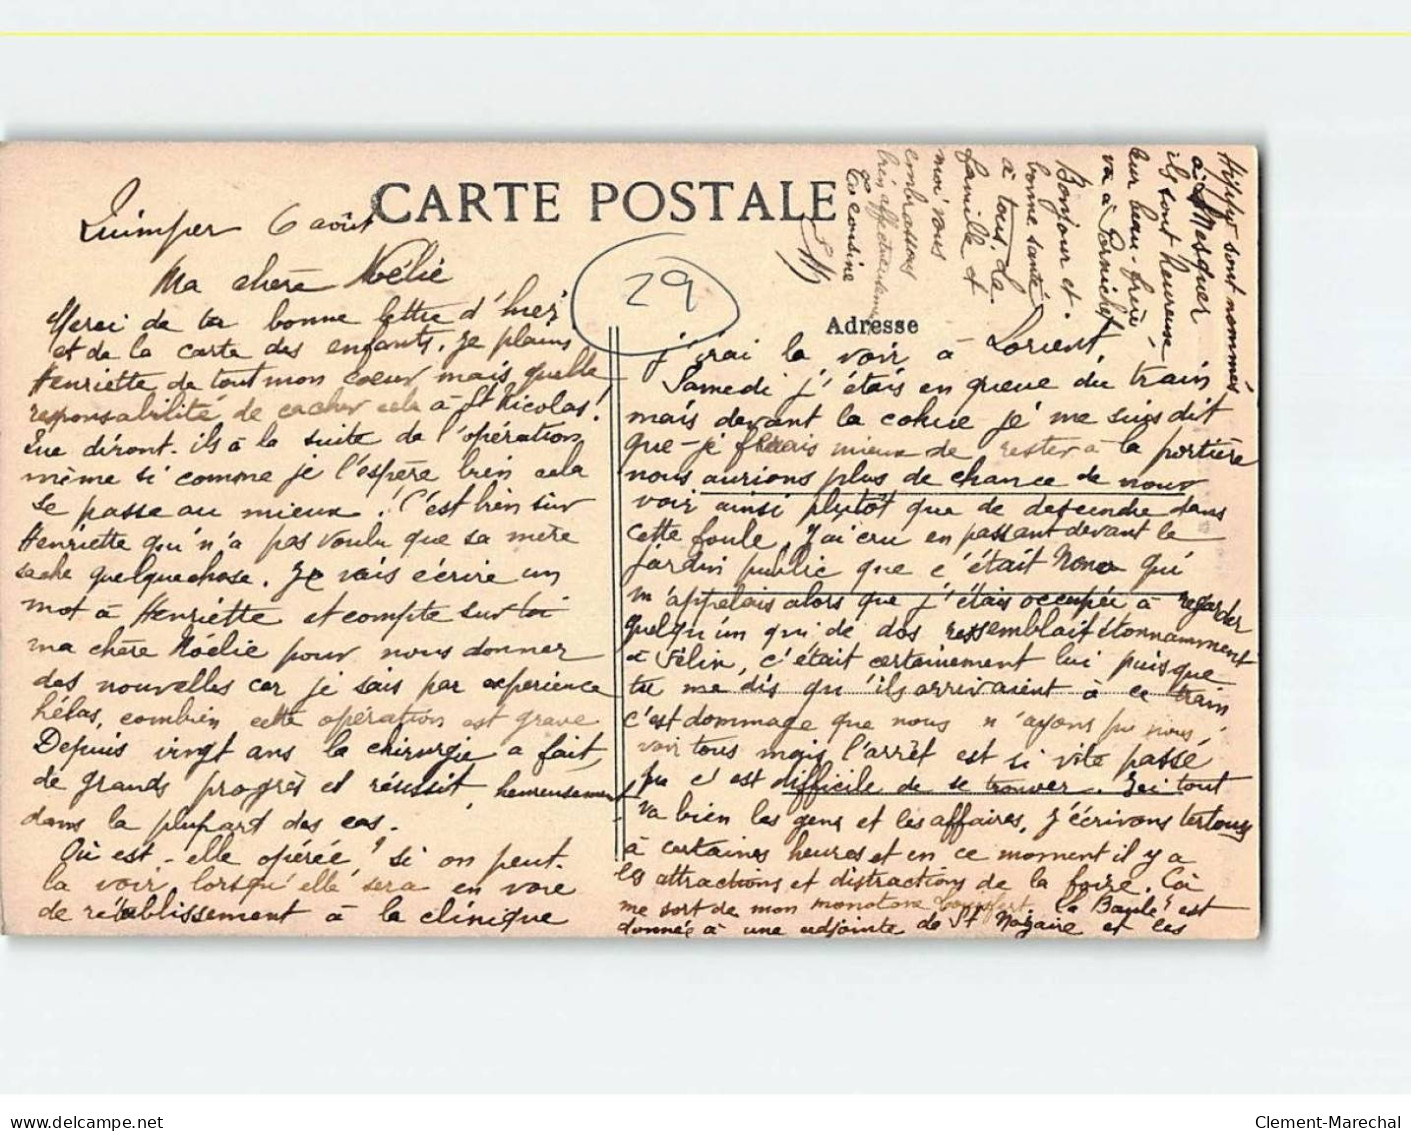 CARTE POSTALE
Quimper 6 août
Ma chère Noélie
Merci de ta bonne lettre d'hier
et de la carte des enfants. Je plains
Henriette de tout mon coeur mais quelle
responsabilité de cacher cela à St Nicolas!
Que diront-ils à la suite de l'opération
même si comme je l'espère bien cela
se passe au mieux! C'est bien sûr
Henriette qui n'a pas voulu que sa mère
sache quelque chose. Je vais écrire un
mot à Henriette et compte sur toi
ma chère Noélie pour nous donner
des nouvelles car je sais par experience
hélas, combien cette opération est grave
Depuis vingt ans la chirurgie a fait
de grands progrès et réussit, heureusement
dans la plupart des cas.
Où est-elle opérée? si on peut
la voir lorsqu'elle sera en voie
de rétablissement à la clinique
29
Adresse
j'irai la voir à Lorient.
Samedi j'étais en queue du train
mais devant la cohue je me suis dit
que je ferais mieux de rester à la portière
nous aurions plus de chance de nous
voir ainsi plutôt que de descendre dans
cette foule. J'ai cru en passant devant le
jardin public que c'était qui
m'appelais alors que j'étais occupée à regarder
quelqu'un qui de dos ressemblait étonnamment
à Félix, c'était certainement lui puisque
tu me dis qu'ils arrivaient à ce train
c'est dommage que nous n'ayons pu nous
voir tous mais l'arrêt est si vite passé
c'est difficile de se trouver. Ici tout
va bien les gens et les affaires, j'écrivons tertous
à certaines heures et en ce moment il y a
les attractions et distractions de la foire. Ca
me sort de mon monotone La Baule est
donnée à une adjointe de St Nazaire et les
sont nommés
à Mesquer
ils sont heureux
leur beau-frère
va à Pornichet
Bonjour et
bonne santé
à tous. La
famille et
moi vous
embrassons
bien affectueusement
Ta cousine
delcampe.net
Clement-Marechal